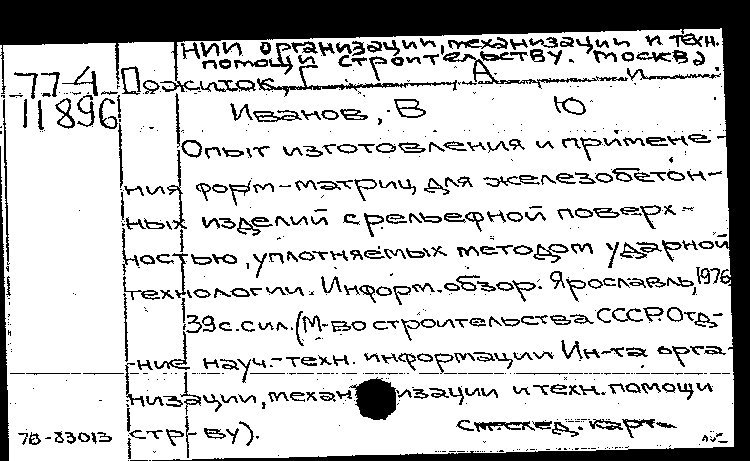 НИИ организации, механизации и техн.
помощи строительству. Москва.
77-4 Пожиток, Г А и
11896 Иванов, В Ю
Опыт изготовления и примене-
ния форм-матриц для железобетон-
ных изделий с рельефной поверх-
ностью, уплотняемых методом ударной
технологии. Информ. обзор. Ярославль, 1976
39 с. сил. (М-во строительства СССР. Отд-
-ние науч.-техн. информации Ин-та орга-
низации, механизации и техн. помощи
78-83013 стр-ву). см. след. карт.